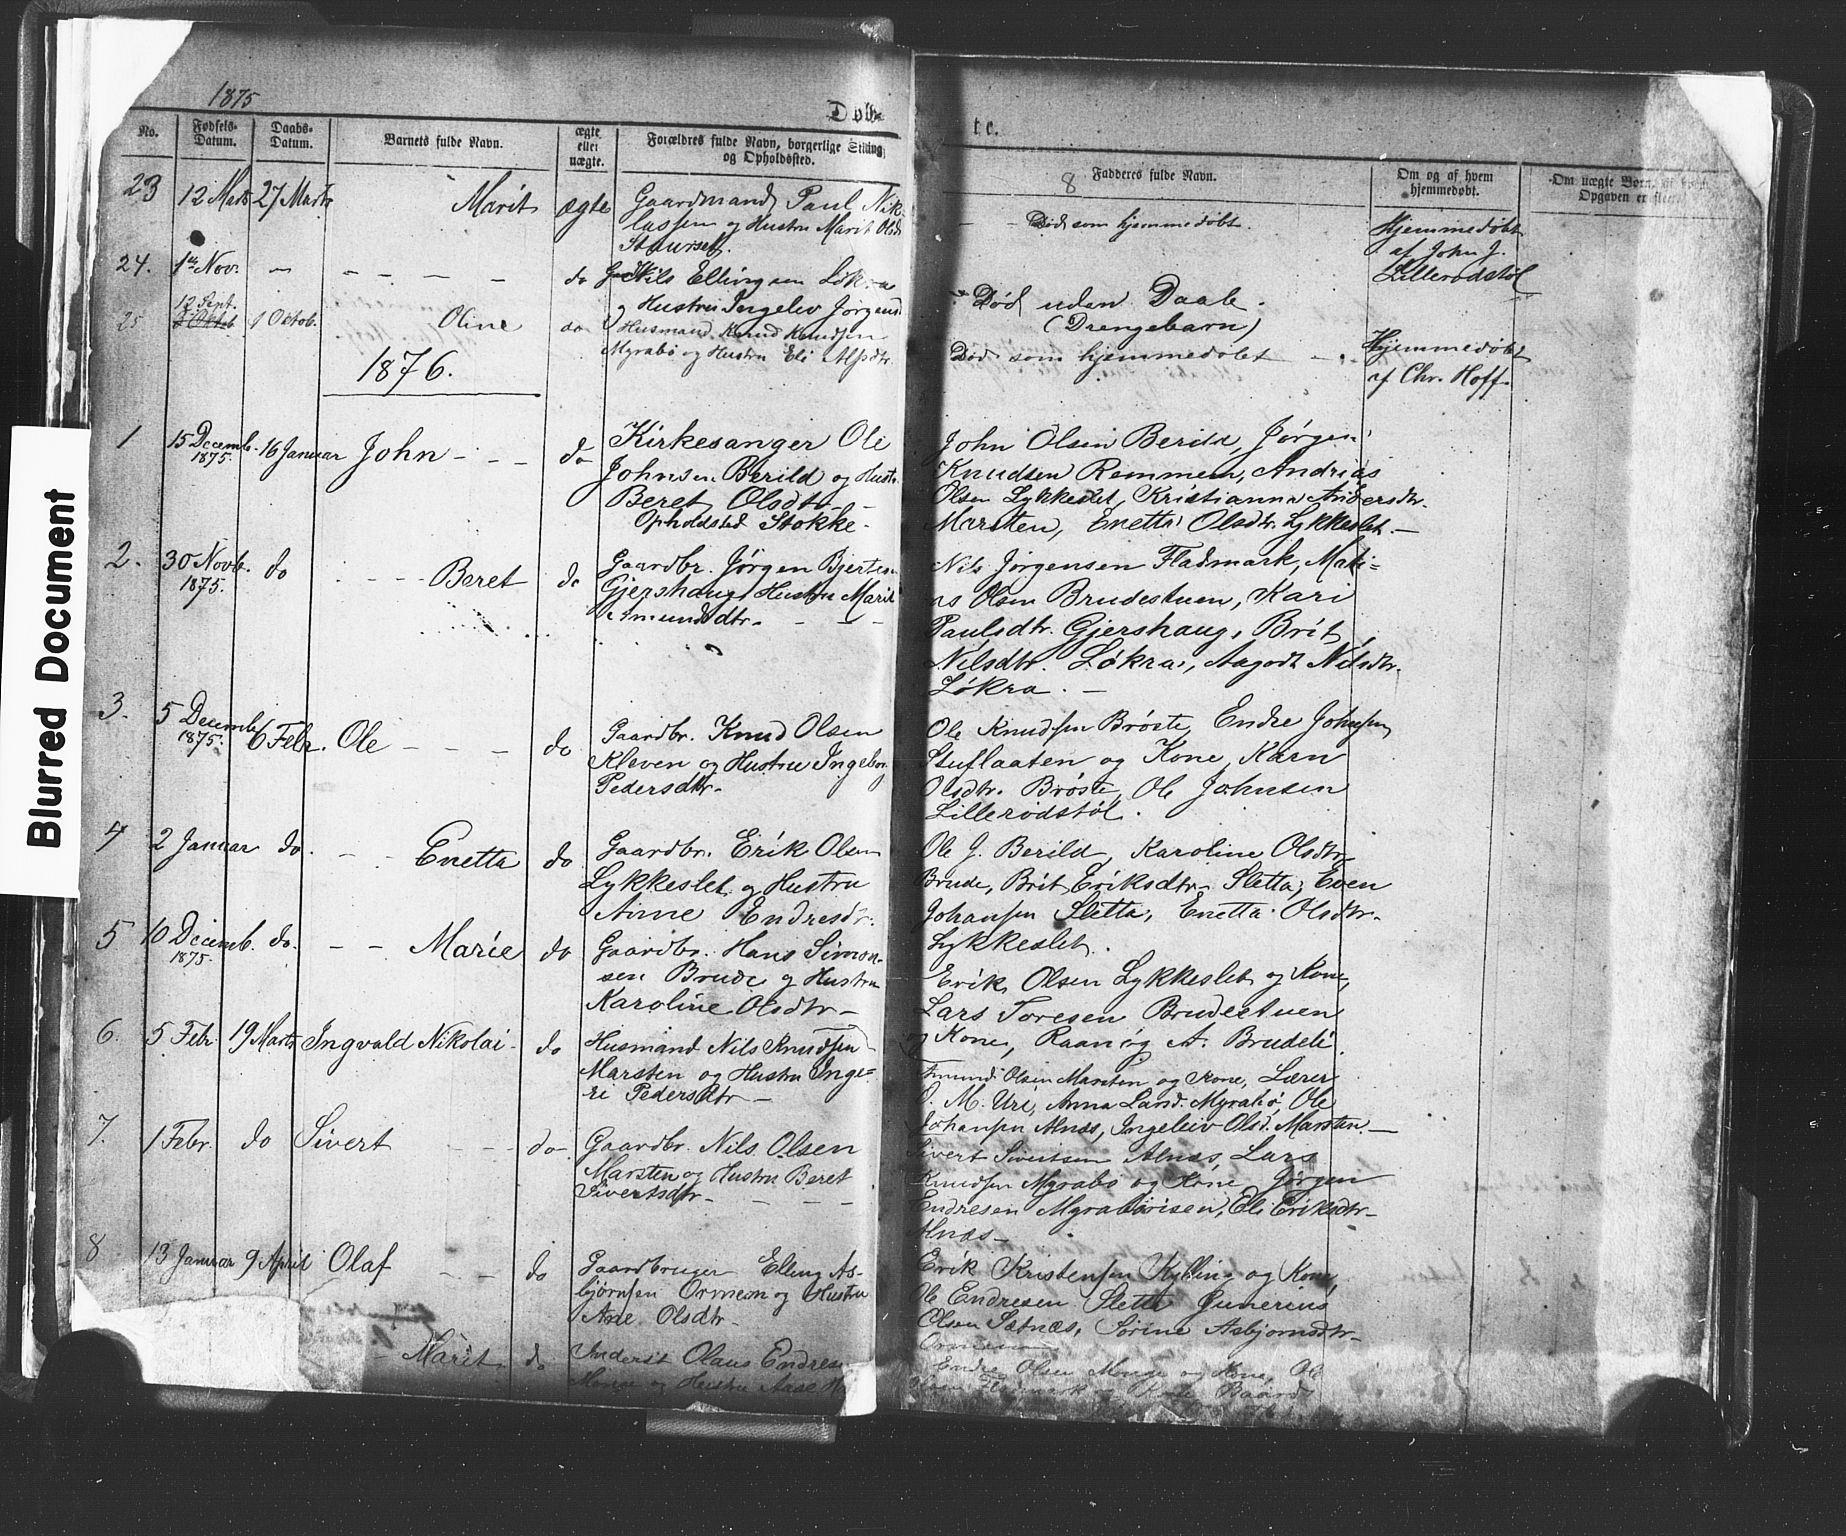 Blurred Document
1875
Døb-
te.
No.
Fødsels-
Datum.
Daabs-
Datum.
Barnets fulde Navn.
ægte
eller
uægte.
Forældres fulde Navn, borgerlige Stilling
og Opholdssted.
8
Fadderes fulde Navn.
Om og af hvem
hjemmedøbt.
Om uægte Børn,
Opgaven er
23
12 Marts 27 Marts
Marit
ægte
Gaardmand Paul Nik-
lassen og Hustru Marit Olsdr
Staurset.
Død som hjemmedøbt.
Hjemmedøbt
af John J.
Lillerødstøl
24.
1ste Nov.
— — — — —
do
Nils Ellingsen Løkra
og Hustru Ingelev Jørgensd
Død uden Daab.
(Drengebarn)
25
12 Sept.
1 Oktob.
Oline
do
Husmand Knud Knudsen
Myrabø og Hustru Eli Alfsdtr.
Død som hjemmedøbt —
Hjemmedøbt
af Chr. Hoff.
1876.
1
15 Decemb.
1875.
16 Januar
John - - -
do
Kirkesanger Ole
Johnsen Berild og Hustr.
Beret Olsdtr. -
Opholdsted Stokke.
John Olsen Berild, Jørgen
Knudsen Remmem, Andrias
Olsen Lykkeslet, Kristianna Andersdtr.
Marsten, Enetta Olsdtr. Lykkeslet. —
2.
30 Novb.
1875.
do
- - - Beret
do
Gaardbr. Jørgen Bjertsen
Gjershaug, Hustru Marit
Amundsdtr. - - -
Nils Jørgensen Fladmark, Mati-
as Olsen Brudestuen, Kari
Paulsdtr. Gjershaug, Brit
Nilsdtr. Løkra, Aagodt Nilsdtr.
Løkra. —
3.
5 Decemb.
1875.
6 Febr.
Ole - - - -
do
Gaardbr. Knud Olsen
Kleven og Hustru Ingebor
Pedersdtr. -
Ole Knudsen Brøste, Endre Johnsen
Stuflaaten og Kone, Karn
Olsdtr. Brøste, Ole Johnsen
Lillerødstøl.
4
2 Januar
do.
- - Enetta
do
Gaardbr. Erik Olsen
Lykkeslet og Hustru
Anne Endresdtr.
Ole J. Berild, Karoline Olsdtr
Brude, Brit Eriksdtr. Sletta, Even
Johansen Sletta, Enetta Olsdtr.
Lykkeslet.
5
10 Decemb.
1875.
do.
- - Marie
do
Gaardbr. Hans Simon-
sen Brude og Hustru
Karoline Olsdtr —
Erik Olsen Lykkeslet og Kone,
Lars Toresen Brudestuen
og Kone, Raanøg A. Brudeli
6.
5 Febr.
19 Marts
Ingvald Nikolai -
do
Husmand Nils Knudsen
Marsten og Hustru Inge-
ri Pedersdtr —
Amund Olsen Marsten og Kone, Lærer
O. M. Uri, Anna Larsd. Myrabø, Ole
Johansen Alnæs, Ingeleiv Olsd. Marsten. —
7.
1 Febr.
do
Sivert - - -
do-
Gaardbr. Nils Olsen
Marsten og Hustru Beret
Sivertsdtr. - - -
Sivert Sivertsen Alnæs, Lars
Knudsen Myrabø og Kone, Jørgen
Endresen Myrabøvisen, Eli Eriksdtr
Alnæs —
8
13 Januar
9 April
Olaf - -
do
Gaardbruger Elling As-
bjørnsen Ormem og Hustru
Ane Olsdtr -
Erik Kristensen Kylling og Kone,
Ole Endresen Sletta, Gunerius
Olsen Sætnæs, Sørine Asbjørnsdtr
Ormem
- Marit
do
Olaus Endres
Monge og Hustru Aase
Endre Olsen Monge og Kone, Ole
Flatmark og Kone, Baard